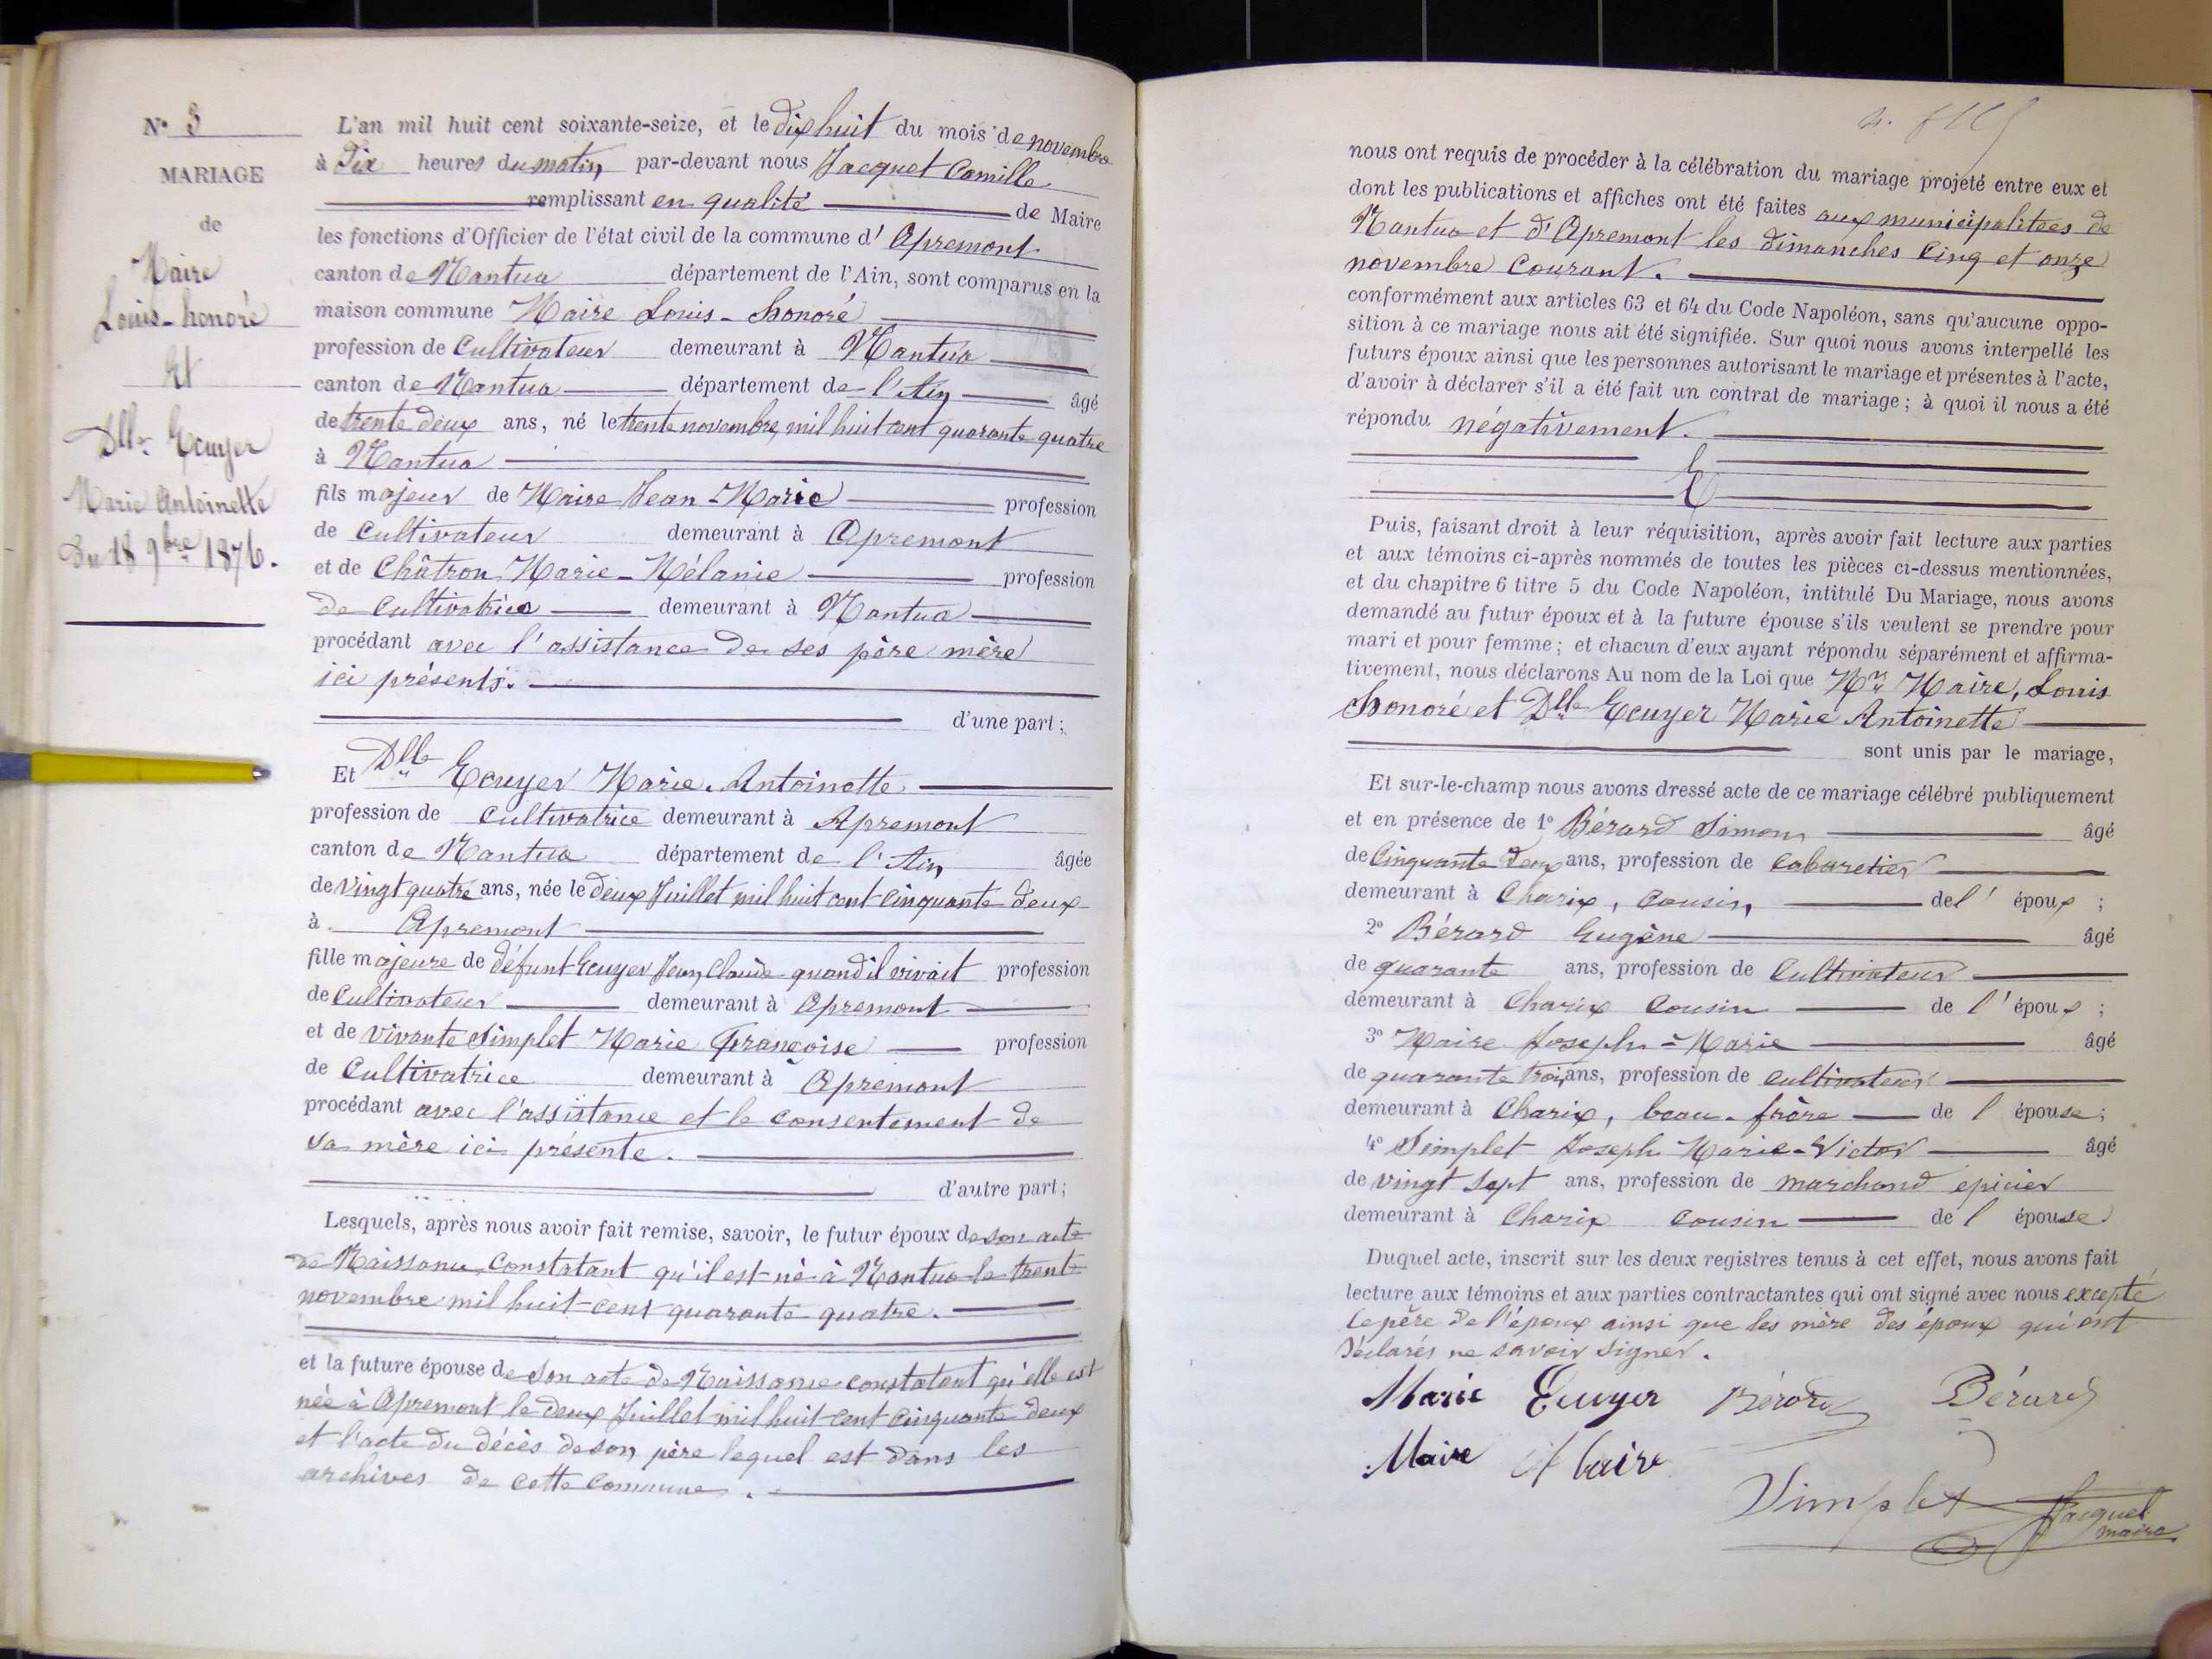 N° 5
MARIAGE
de
Maire
Louis-honoré
Et
Dlle Ecuyer
Marie Antoinette
Du 18 9bre 1876.
L'an mil huit cent soixante-seize, et le dix huit du mois de novembre
à Dix heures du matin, par-devant nous Jacquet Camille
remplissant en qualité de Maire
les fonctions d'Officier de l'état civil de la commune d' Apremont
canton de Nantua département de l'Ain, sont comparus en la
maison commune Maire Louis-Honoré
profession de Cultivateur demeurant à Nantua
canton de Nantua département de l'Ain âgé
de trente deux ans, né le trente novembre, mil huit cent quarante quatre
à Nantua
fils majeur de Maire Jean-Marie profession
de Cultivateur demeurant à Apremont
et de Châtron, Marie-Mélanie profession
de Cultivatrice demeurant à Nantua
procédant avec l'assistance de ses père mère
ici présents.
d'une part;
Et Dlle Ecuyer Marie-Antoinette
profession de Cultivatrice demeurant à Apremont
canton de Nantua département de l'Ain âgée
de vingt quatre ans, née le deux Juillet mil huit cent cinquante deux
à Apremont
fille majeure de défunt Ecuyer Jean, Claude quand il vivait profession
de Cultivateur demeurant à Apremont
et de vivante Simplet Marie Françoise profession
de Cultivatrice demeurant à Apremont
procédant avec l'assistance et le consentement de
sa mère ici présente.
d'autre part;
Lesquels, après nous avoir fait remise, savoir, le futur époux de son acte
de Naissance, Constatant qu'il est né à Nantua le trente
novembre mil huit-cent quarante quatre.
et la future épouse de son acte de Naissance constatant qu'elle est
née à Apremont le deux Juillet mil huit-cent cinquante deux
et l'acte du décès de son père lequel est dans les
archives de cette Commune.
nous ont requis de procéder à la célébration du mariage projeté entre eux et
dont les publications et affiches ont été faites aux municipalitées de
Nantua et d'Apremont les dimanches Cinq et onze
novembre Courant.
conformément aux articles 63 et 64 du Code Napoléon, sans qu'aucune oppo-
sition à ce mariage nous ait été signifiée. Sur quoi nous avons interpellé les
futurs époux ainsi que les personnes autorisant le mariage et présentes à l'acte,
d'avoir à déclarer s'il a été fait un contrat de mariage; à quoi il nous a été
répondu négativement.
Puis, faisant droit à leur réquisition, après avoir fait lecture aux parties
et aux témoins ci-après nommés de toutes les pièces ci-dessus mentionnées,
et du chapitre 6 titre 5 du Code Napoléon, intitulé Du Mariage, nous avons
demandé au futur époux et à la future épouse s'ils veulent se prendre pour
mari et pour femme; et chacun d'eux ayant répondu séparément et affirma-
tivement, nous déclarons Au nom de la Loi que Mr Maire, Louis
Honoré et Dlle Ecuyer Marie Antoinette
sont unis par le mariage,
Et sur-le-champ nous avons dressé acte de ce mariage célébré publiquement
et en présence de 1° Bérard Simon âgé
de Cinquante deux ans, profession de cabaretier
demeurant à Charix, Cousin, de l' époux ;
2° Bérard Eugène âgé
de quarante ans, profession de Cultivateur
demeurant à Charix Cousin de l' époux ;
3° Maire Joseph-Marie âgé
de quarante trois ans, profession de cultivateur
demeurant à Charix, beau-frère de l épouse;
4° Simplet Joseph Marie-Victor âgé
de vingt sept ans, profession de marchand epicier
demeurant à Charix Cousin de l épouse
Duquel acte, inscrit sur les deux registres tenus à cet effet, nous avons fait
lecture aux témoins et aux parties contractantes qui ont signé avec nous excepté
le père de l'époux ainsi que les mère des époux qui ont
Déclarés ne savoir signer.
Marie Ecuyer Bérard Bérard
Maire Maire
Simplet Jacquet
maire